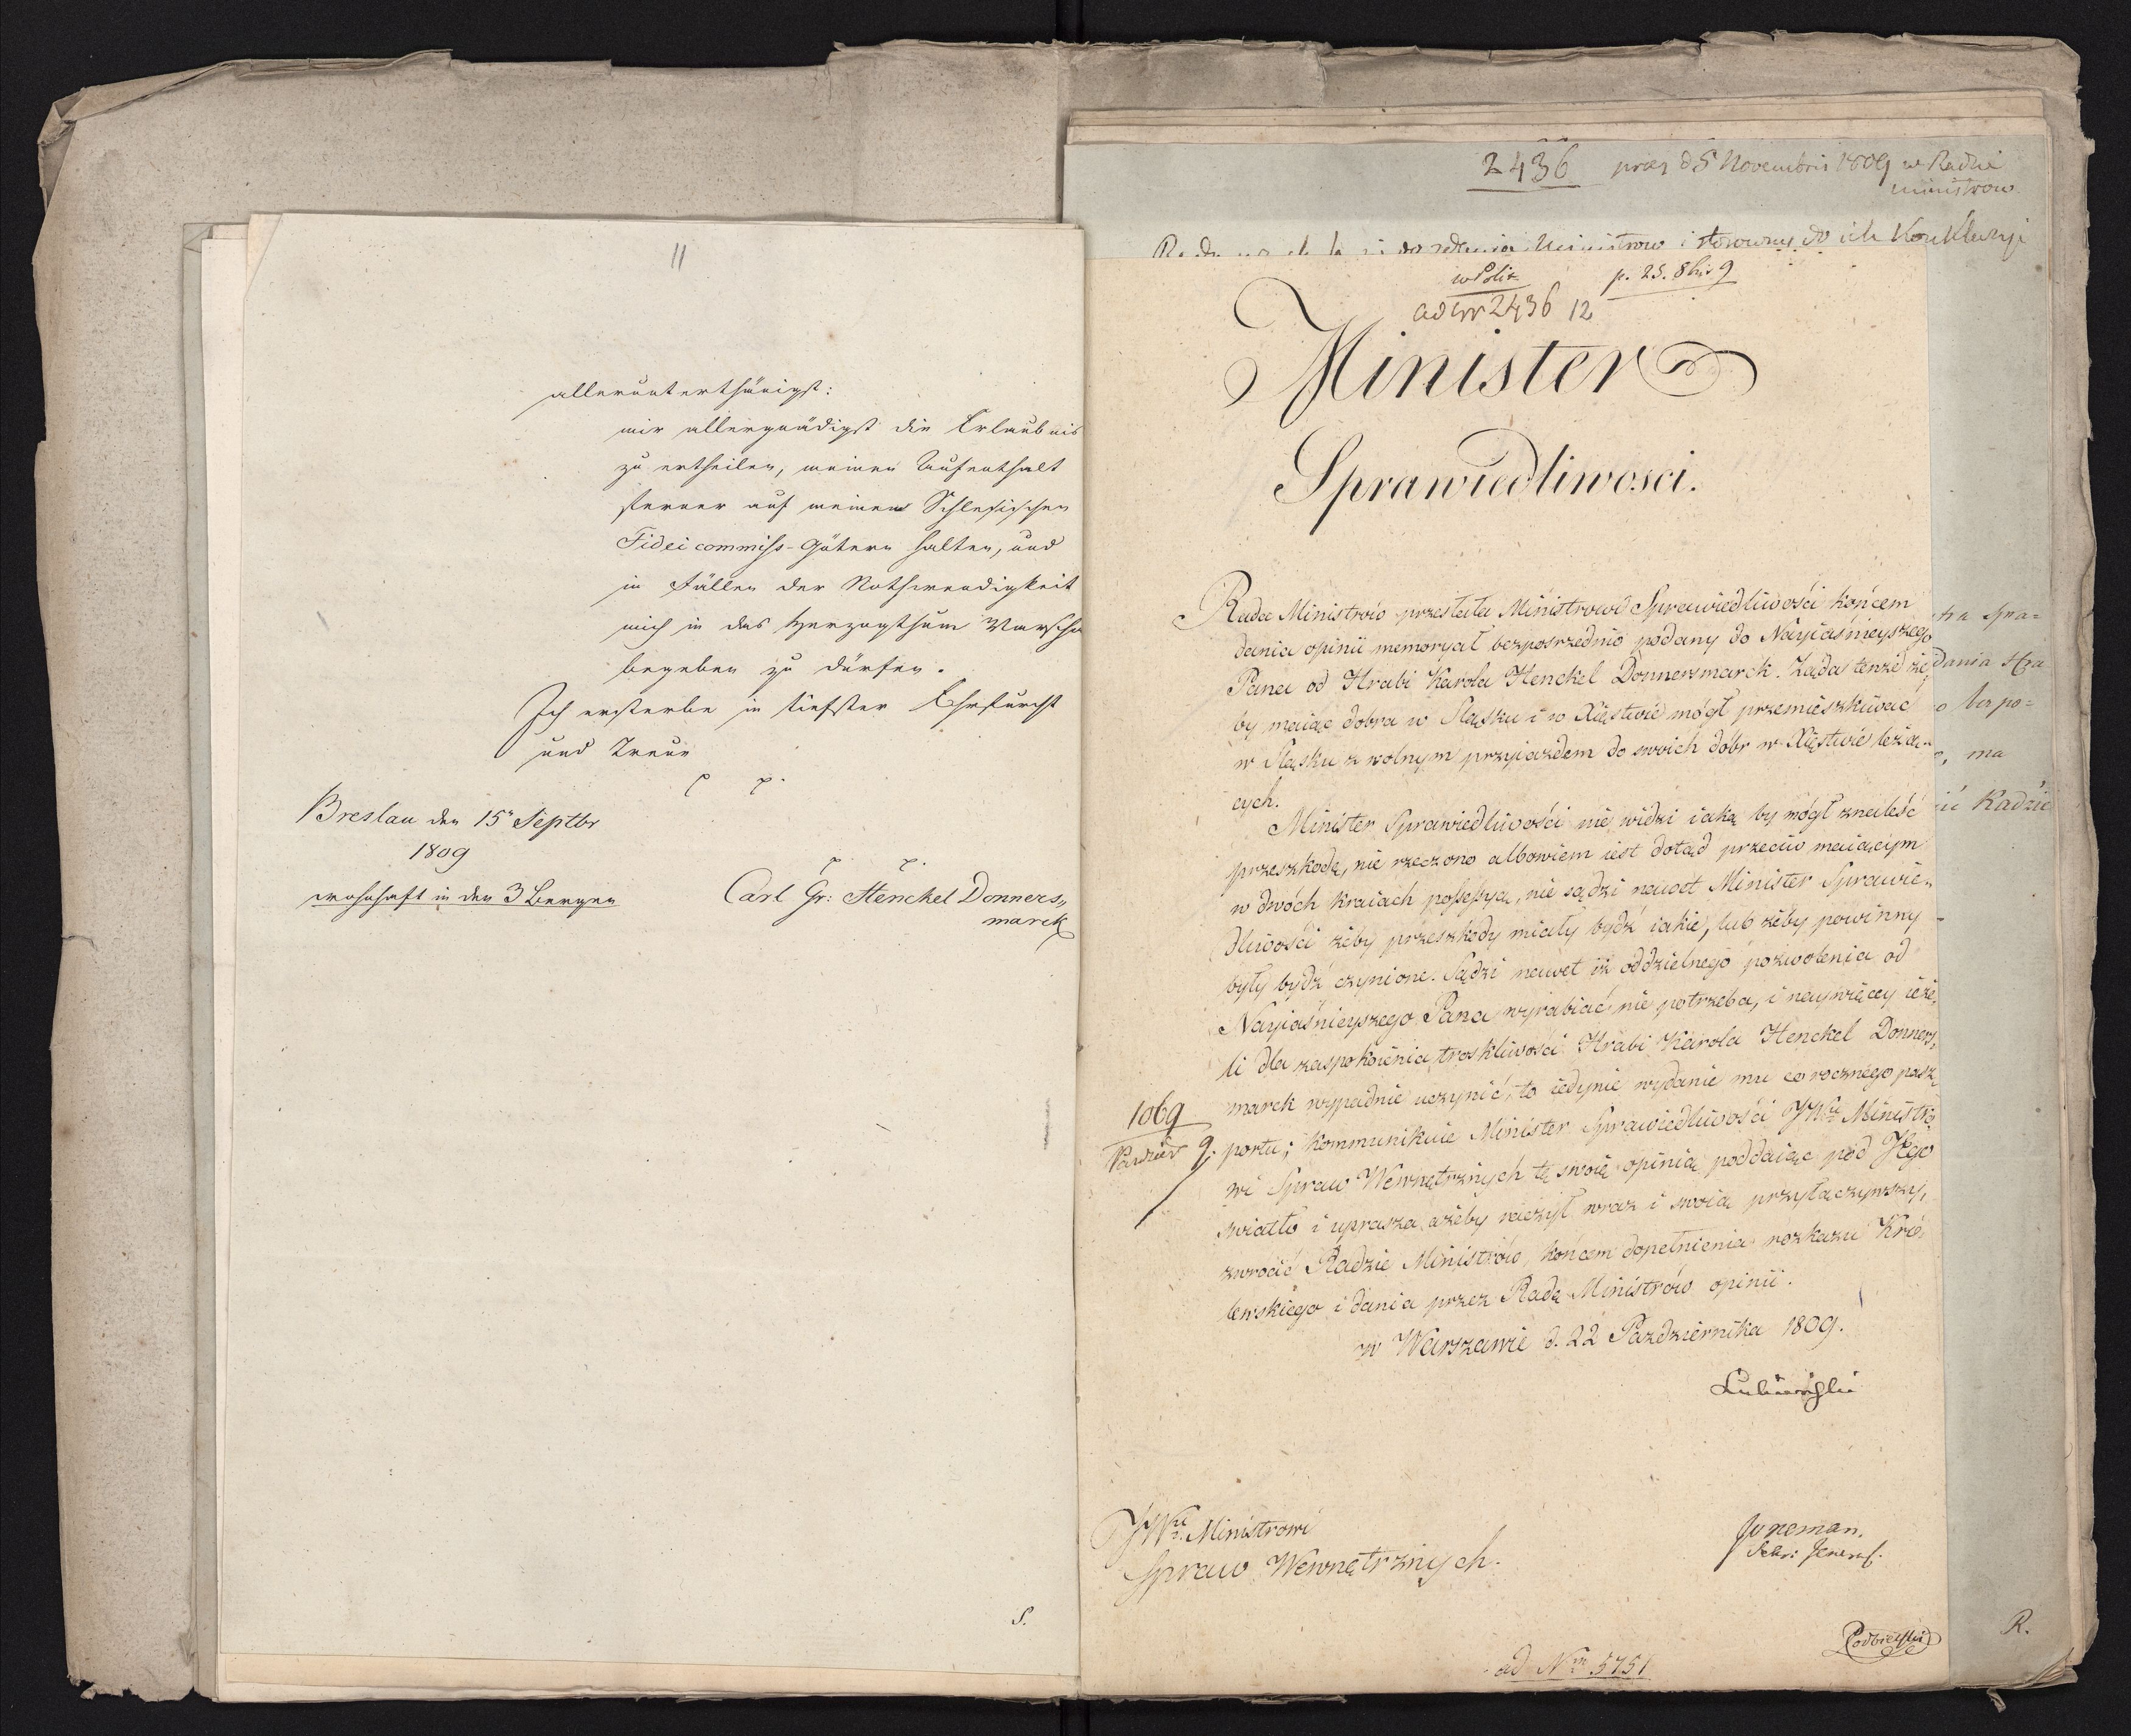 11
allerunterthänigst:
mir allergnädigst die Erlaubnis
zu ertheilen, meinen Aufenthalt
ferner auf meinen Schlesischen
Fidei commiss-Gütern halten, und
in Fällen der Nothwendigkeit
mich in das Herzogthum Warscha
begeben zu dürfen.
Ich ersterbe in tiefster Ehrfurcht
und Treue
Breslau den 15n Septbr
1809
wohnhaft in den 3 Bergen
Carl Gr: Henckel Donners„
marck
S.
2436 praes d 5 Novembris 1809 w Radzie
ministrow
do zdania Ministrow i stosowny do ich Konkluzyi
w Polic
p. 25. 8bris 9
ad Nr 2436 12
Minister
Sprawiedliwosci.
Rada Ministrów przesłała Ministrowi Sprawiedliwości końcem
dania opinii memoryał bezpośrzednio podany do Nayiaśnieyszego
Pana od Hrabi Karola Henckel Donnersmarck. Żąda tenże że„
by maiąc dobra w Sląsku i w Xięstwie mógł przemieszkiwać
w Sląsku z wolnym przyiazdem do swoich dóbr w Xięstwie leżą„
cych.
Minister Sprawiedliwości nie widzi iaką by mógł znaleść
przeszkodę, nie rzeczono albowiem iest dotąd przeciw maiącym
w dwóch kraiach possessyą, nie sądzi nawet Minister Sprawie„
dliwości żeby przeszkody miały bydź iakie, lub żeby powinny
były bydź czynione. Sądzi nawet iż oddzielnego pozwolenia od
Nayiaśnieyszego Pana wyrabiać nie potrzeba, i naywięcey ieże„
li dla zaspokoienia troskliwości Hrabi Karola Henckel Donners„
marck wypadnie uczynić, to iedynie wydanie mu corocznego pasz„
portu; kommunikuie Minister Sprawiedliwości JWu Ministro
wi Spraw Wewnętrznych tę swoię opinią poddaiąc pod Jego
swiatło i uprasza ażeby raczył wraz i swoią przyłączywszy,
zwrócić Radzie Ministrów, końcem dopełnienia rozkazu Kró„
lewskiego i dania przez Radę Ministrów opinii.
w Warszawie d. 22 Pazdziernika 1809.
1069
Pazdzier 9.
Lubieński
JWu Ministrowi
Spraw Wewnętrznych.
Sekr: Jeneral.
Podbielski
ad Nrm 5751
tra Spra=
dania Hra
o bezpo=
ma
Radzie
R.